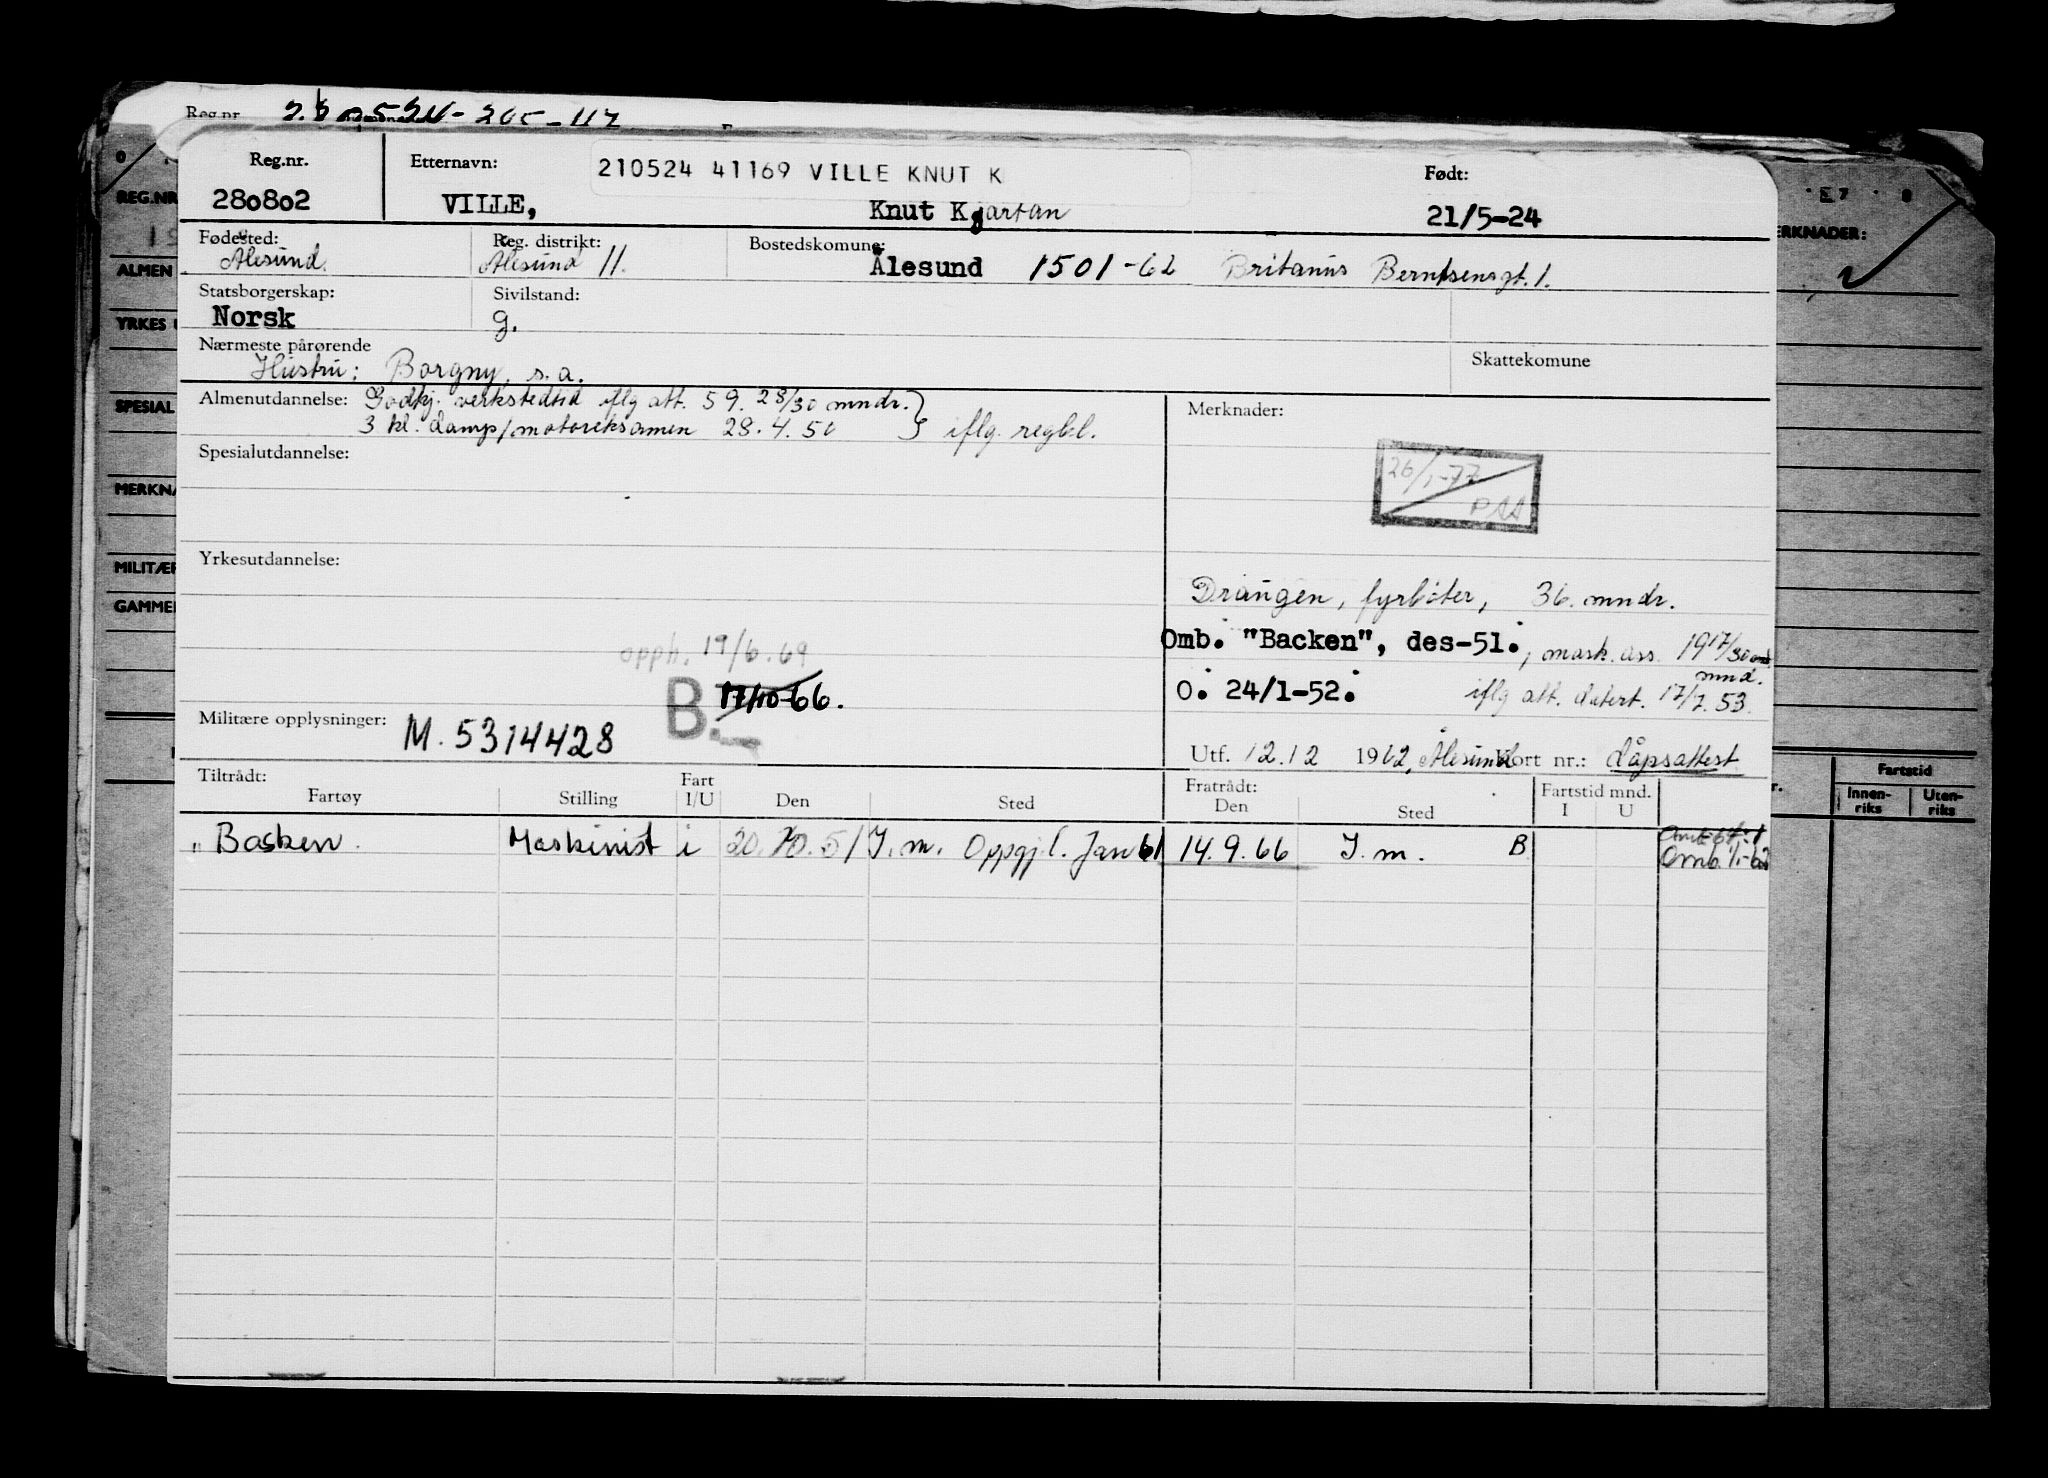 Reg.nr.
Reg.nr. Etternavn: 210524 41169 VILLE KNUT K Født:
280802 VILLE, Knut Kjartan 21/5-24
Fødested: Reg. distrikt: Bostedskomune:
Ålesund Ålesund 11. Ålesund 1501-62 Britanus Berntsensgt. 1.
Statsborgerskap: Sivilstand:
Norsk g.
Nærmeste pårørende Skattekomune
Hustru: Borgny, s.a.
Almenutdannelse: Godkj. verkstedtid iflg att. 59. 28/30 mndr. Merknader:
3 kl. damp/motoreksamen 28.4.50 } iflg. regbl.
Spesialutdannelse:
26/1-77
Yrkesutdannelse:
Draugen, fyrbøter, 36. mndr.
opph. 19/6.69 Omb. "Backen", des-51., mask. ass. 19 17/30 mnd.
B. 17/10-66. O. 24/1-52. iflg att. datert. 17/7.53.
Militære opplysninger: M. 5314428
Utf. 12.12 1962, Ålesund Kort nr.: dåpsattest
Tiltrådt: Fart Fratrådt: Fartstid mnd.
Fartøy Stilling I/U Den Sted Den Sted I U
" Backen. Maskinist i 20.10.51 I.m. Oppgj.l. Jan 61 14.9.66 I.m. B Omb. 1/1-62
REG.NR
ALMEN
YRKES
SPESIAL
MERKNA
MILITÆR
GAMMEL
ERKNADER:
Fartstid
Innen-riks Uten-riks